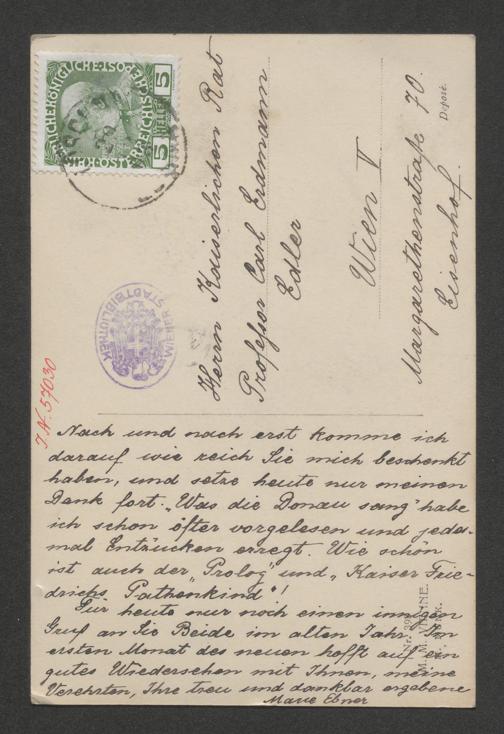 Nach und nach erst komme ich
darauf wie reich Sie mich beschenkt
haben, und setze heute nur meinen
Dank fort. „Was die Donau sang" habe
ich schon öfter vorgelesen und jedes-
mal Entzücken erregt. Wie schön
ist auch der „Prolog" und „Kaiser Frie-
drichs Pathenkind"!
Für heute nur noch einen innigen
Gruß an Sie Beide im alten Jahr. Im
ersten Monat des neuen hofft auf ein
gutes Wiedersehen mit Ihnen, meine
Verehrten, Ihre treu und dankbar ergebene
Marie Ebner
Herrn Kaiserlichen Rat
Professor Carl Erdmann
Edler
Wien V
Margarethenstraße 70.
Eisenhof.
Deposé.
I.N. 57030
WIENER STADTBIBLIOTHEK
5 HELLER 5